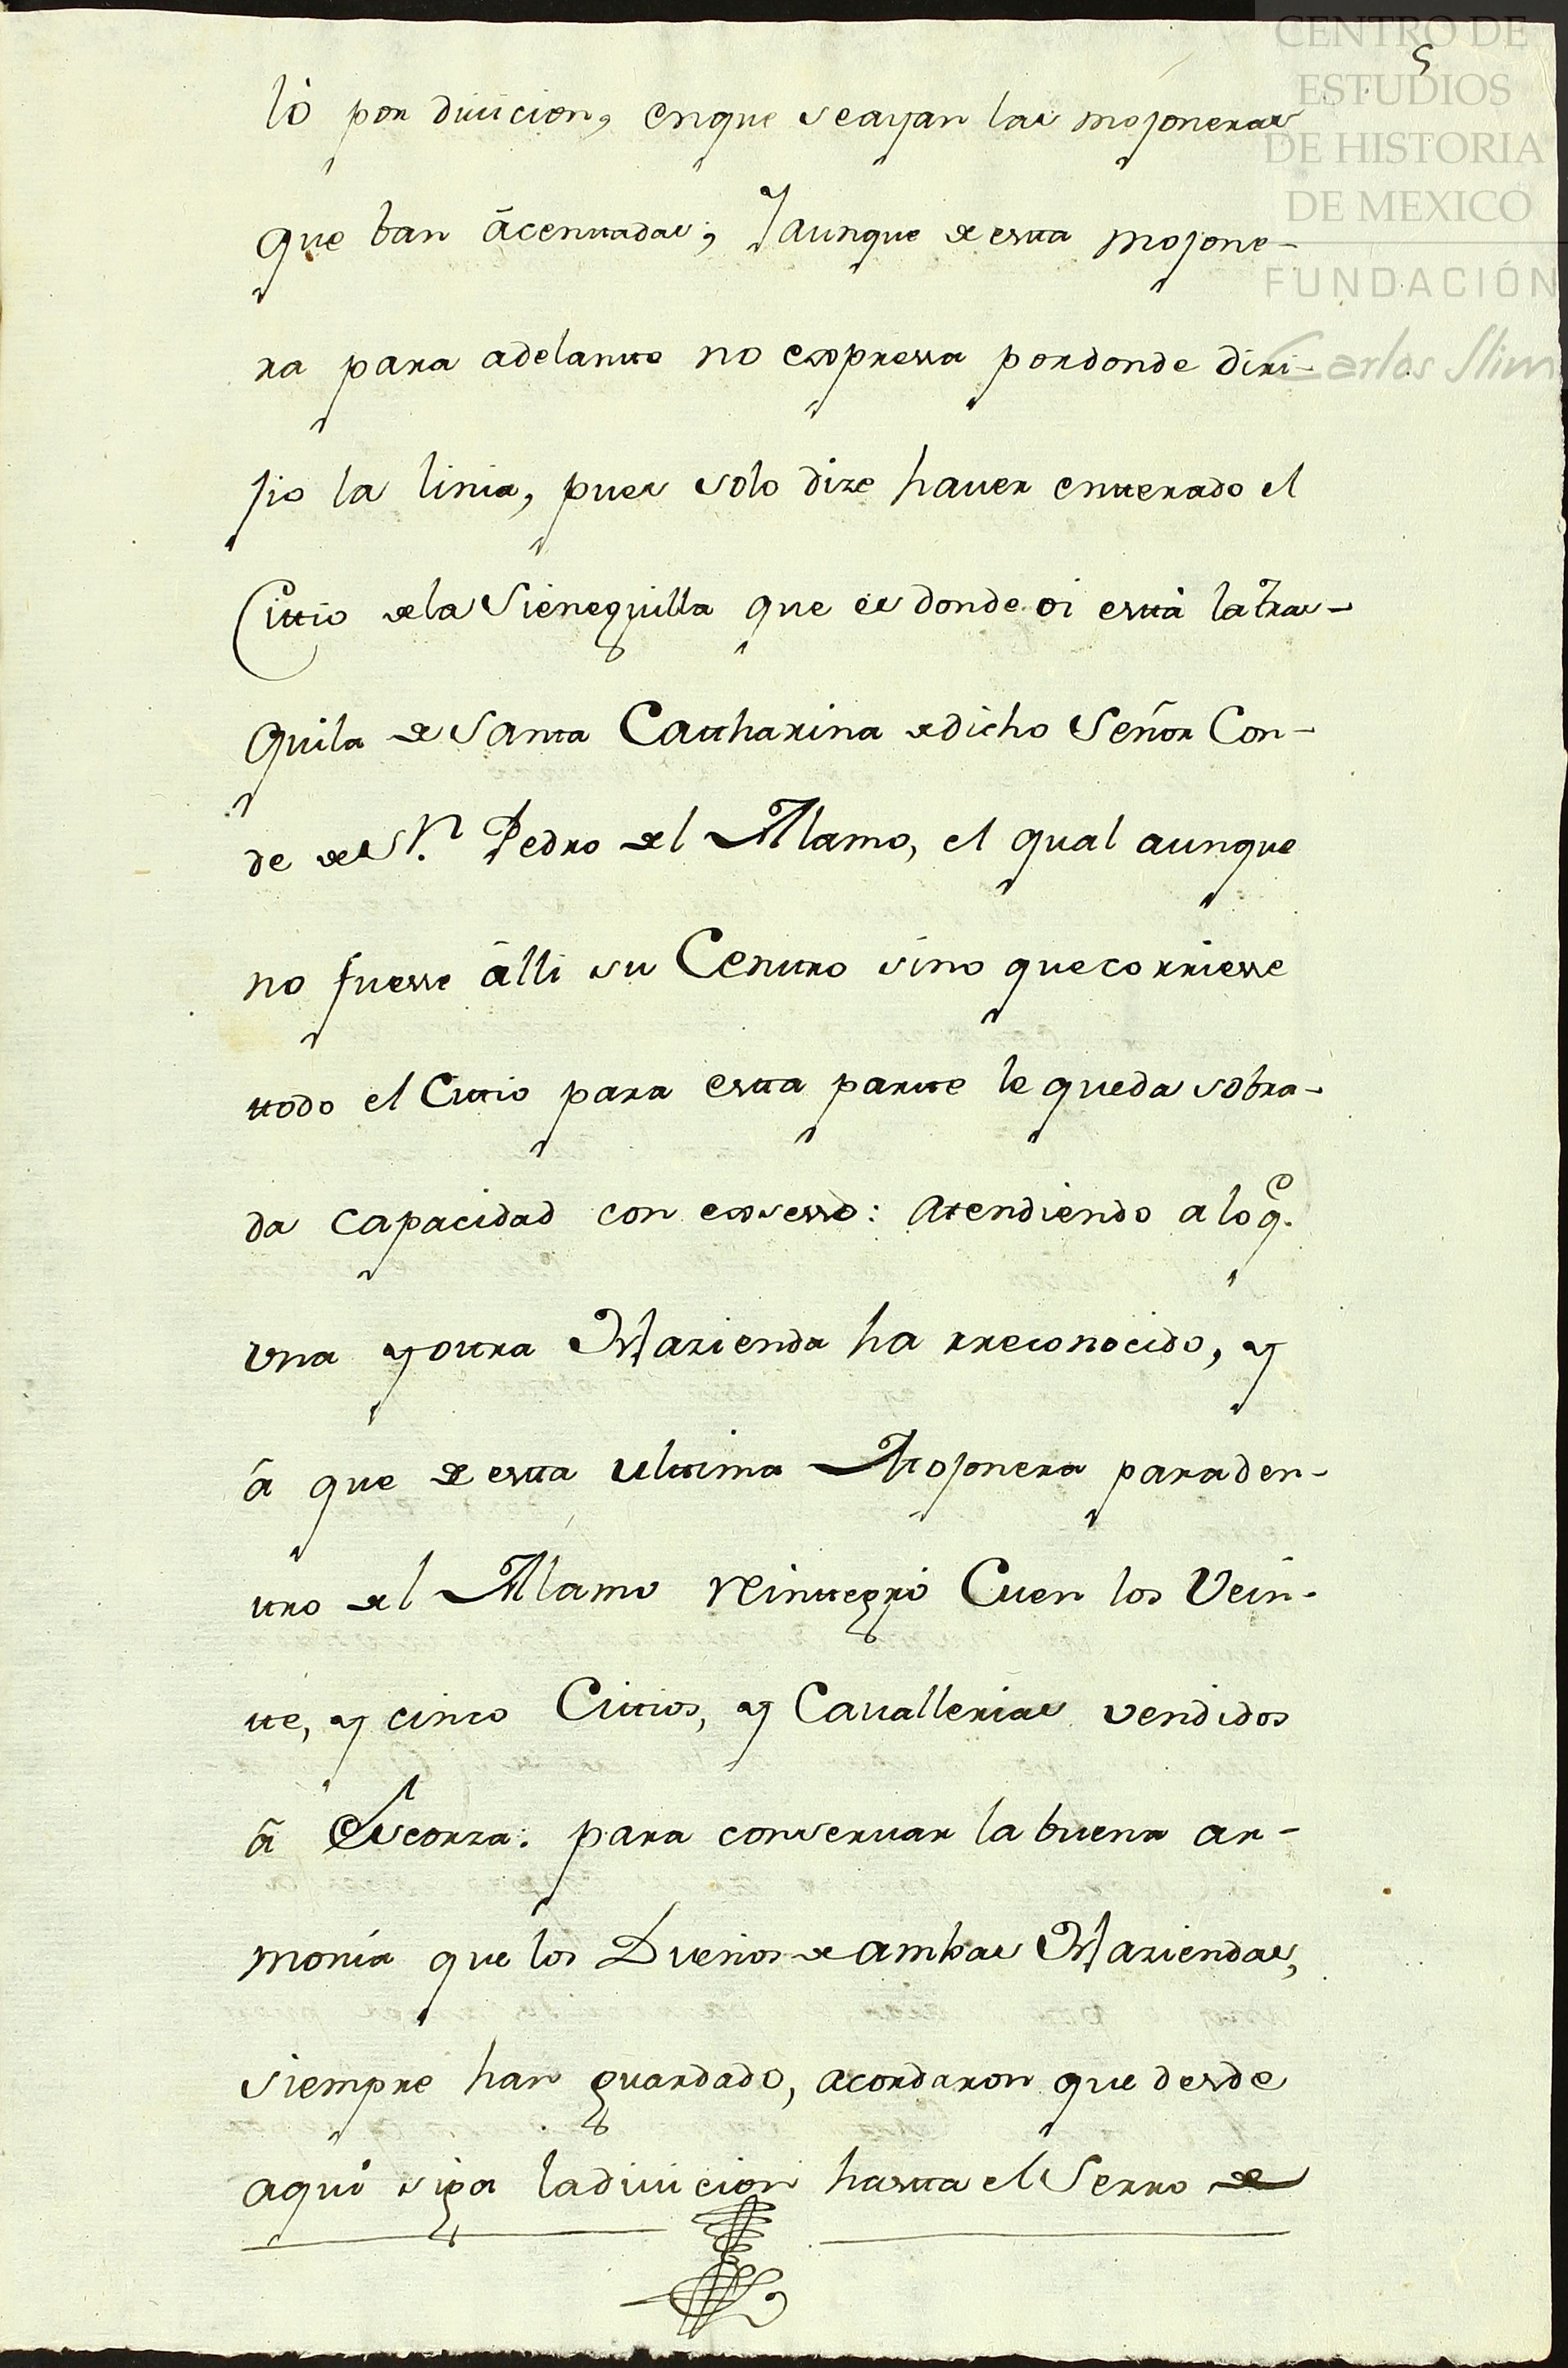 CENTRO DE
ESTUDIOS
DE HISTORIA
DE MEXICO
FUNDACIÓN
Carlos Slim
5
ló por divicion, enque scayan las mojoneras
que ban ãcenttadas; Yaunque de estta mojone-
ra para adelantte no expressa pordonde diri-
jio la linia, pues solo dize haver entterado el
Cittio dela Sieneguilla que es donde oi esttá latras-
quila de Santa Cattharina de dicho Señor Con-
de de Sn. Pedro del Alamo, el qual aunque
no fuesse ãlli su Centtro sino quecorriesse
ttodo el Cittio para estta partte le queda sobra-
da capacidad con exsesso: atendiendo a loqe.
una y ottra Hazienda ha rreconocido, y
á que de estta ulttima Mojonera paraden-
ttro del Alamo reinttegró Cuen los Vein-
tte, y cinco Cittios, y Cavallerias vendidos
ã Escorza: para conservar la buena ar-
monia que los Dueños de ambas Haziendas,
siempre han guardado, acordaron que desde
aqui siga ladivicion hastta el Serro de